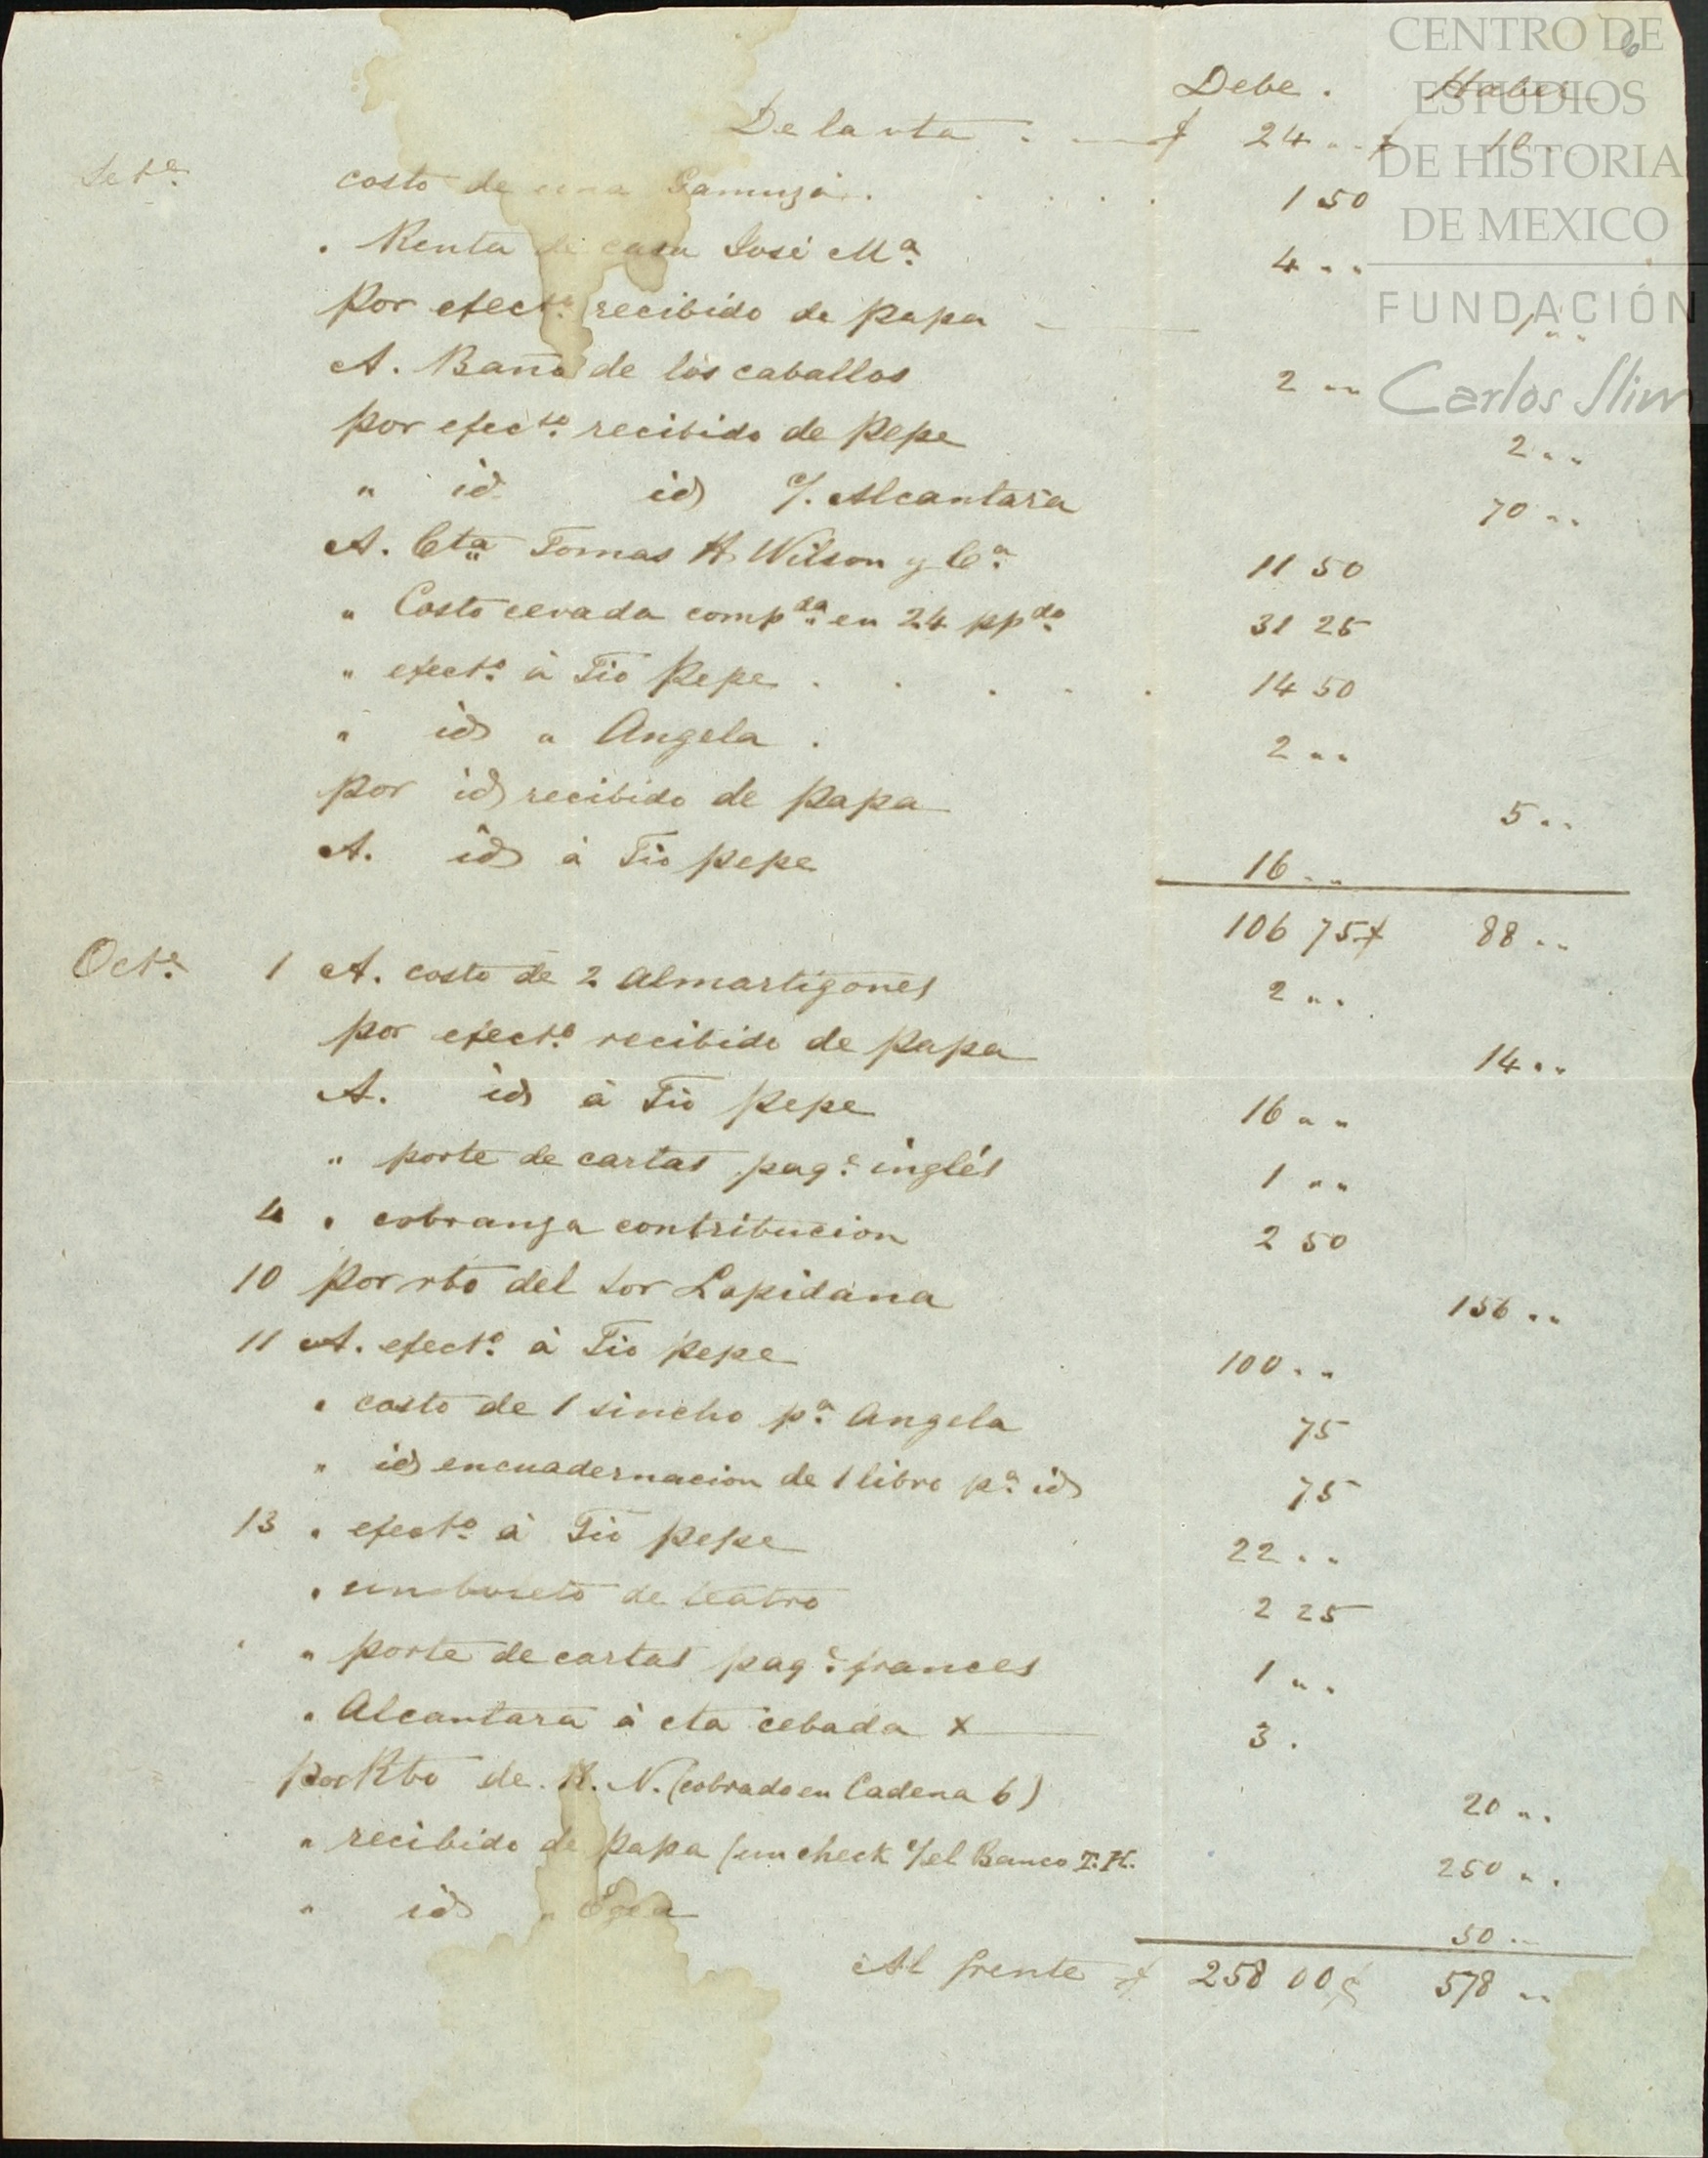 CENTRO DE
ESTUDIOS
DE HISTORIA
DE MEXICO
FUNDACIÓN
Carlos Slim
Debe . Haber
De la vta . $ 24 " " $ 10
Sete. costo de una Gamuza . 1 50
" Renta de casa José Ma. 4 " "
Por efecto. recibido de papa 1 " "
A. Baño de los caballos 2 " "
por efecto. recibido de Pepe 2 " "
" id id c/. Alcantara 70 " "
A. Cta Tomas H. Wilson y Ca. 11 50
" Costo cevada compda. en 24 ppdo. 31 25
" efecto. à Tio Pepe . . . . . 14 50
" id " Angela . 2 " "
Por id recibido de papa 5 " "
A. id à Tio pepe 16 " "
106 75 $ 88 " "
Octe. 1 A. costo de 2 almartigones 2 " "
por efecto. recibido de papa 14 " "
A. id à Tio pepe 16 " "
" porte de cartas paqe. inglés 1 " "
4 " cobranza contribucion 2 50
10 Por rbo del Sor Lapidana 156 " "
11 A. efecto. à Tio pepe 100 " "
" costo de 1 sincho pa. Angela 75
" id encuadernacion de 1 libro pa. id 75
13 " efecto. à Tio pepe 22 " "
" un boleto de teatro 2 25
" porte de cartas paqe. frances 1 " "
" Alcantara à cta cebada x 3 .
por Rbo de N. (cobrado en Cadena 6) 20 " "
" recibido de papa (un check c/el Banco I.H. 250 " "
" id " 50 " "
Al frente $ 258 00 $ 578 " "